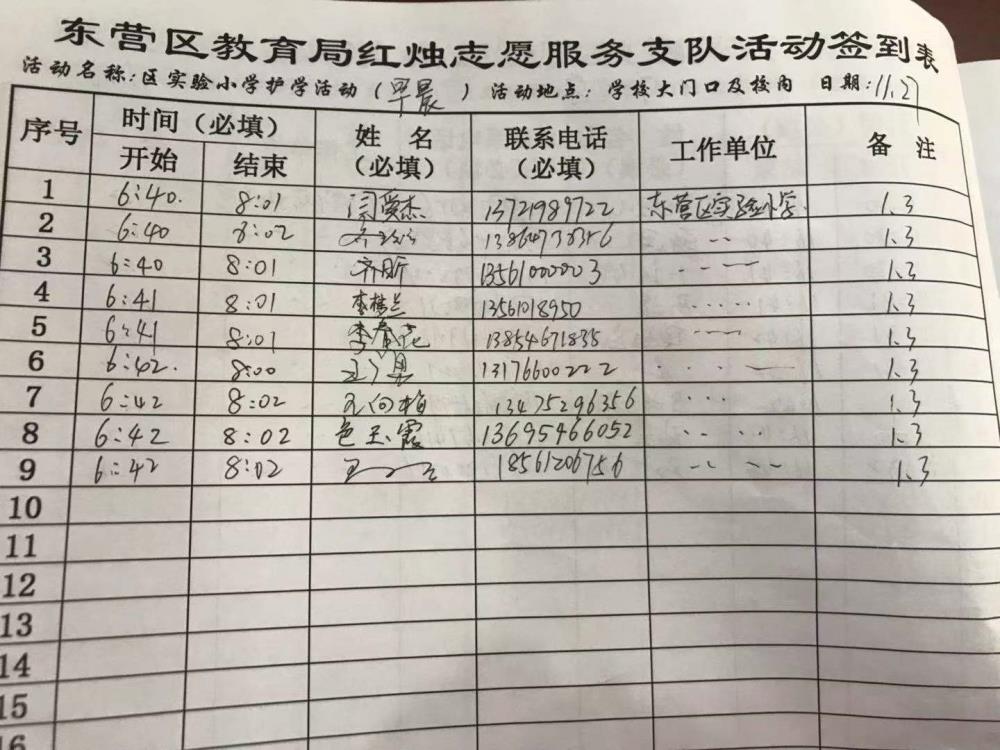 东营区教育局红烛志愿服务支队活动签到表
活动名称:区实验小学护学活动(早晨) 活动地点:学校大门口及校内 日期:11.27
序号 时间(必填) 姓名(必填) 联系电话(必填) 工作单位 备注
开始 结束
1 6:40. 8:01 闫爱杰 13721989722 东营区实验小学 1.3
2 6:40 8:02 1.3
3 6:40 8:01 齐昕 13561000003 1.3
4 6:41 8:01 李桂兰 13561018950 1.3
5 6:41 8:01 李春花 13854671835 1.3
6 6:42. 8:00 13176600222 1.3
7 6:42 8:02 13475296356 1.3
8 6:42 8:02 色玉霞 13695466052 1.3
9 6:42 8:02 18561206756 1.3
10
11
12
13
14
15
16